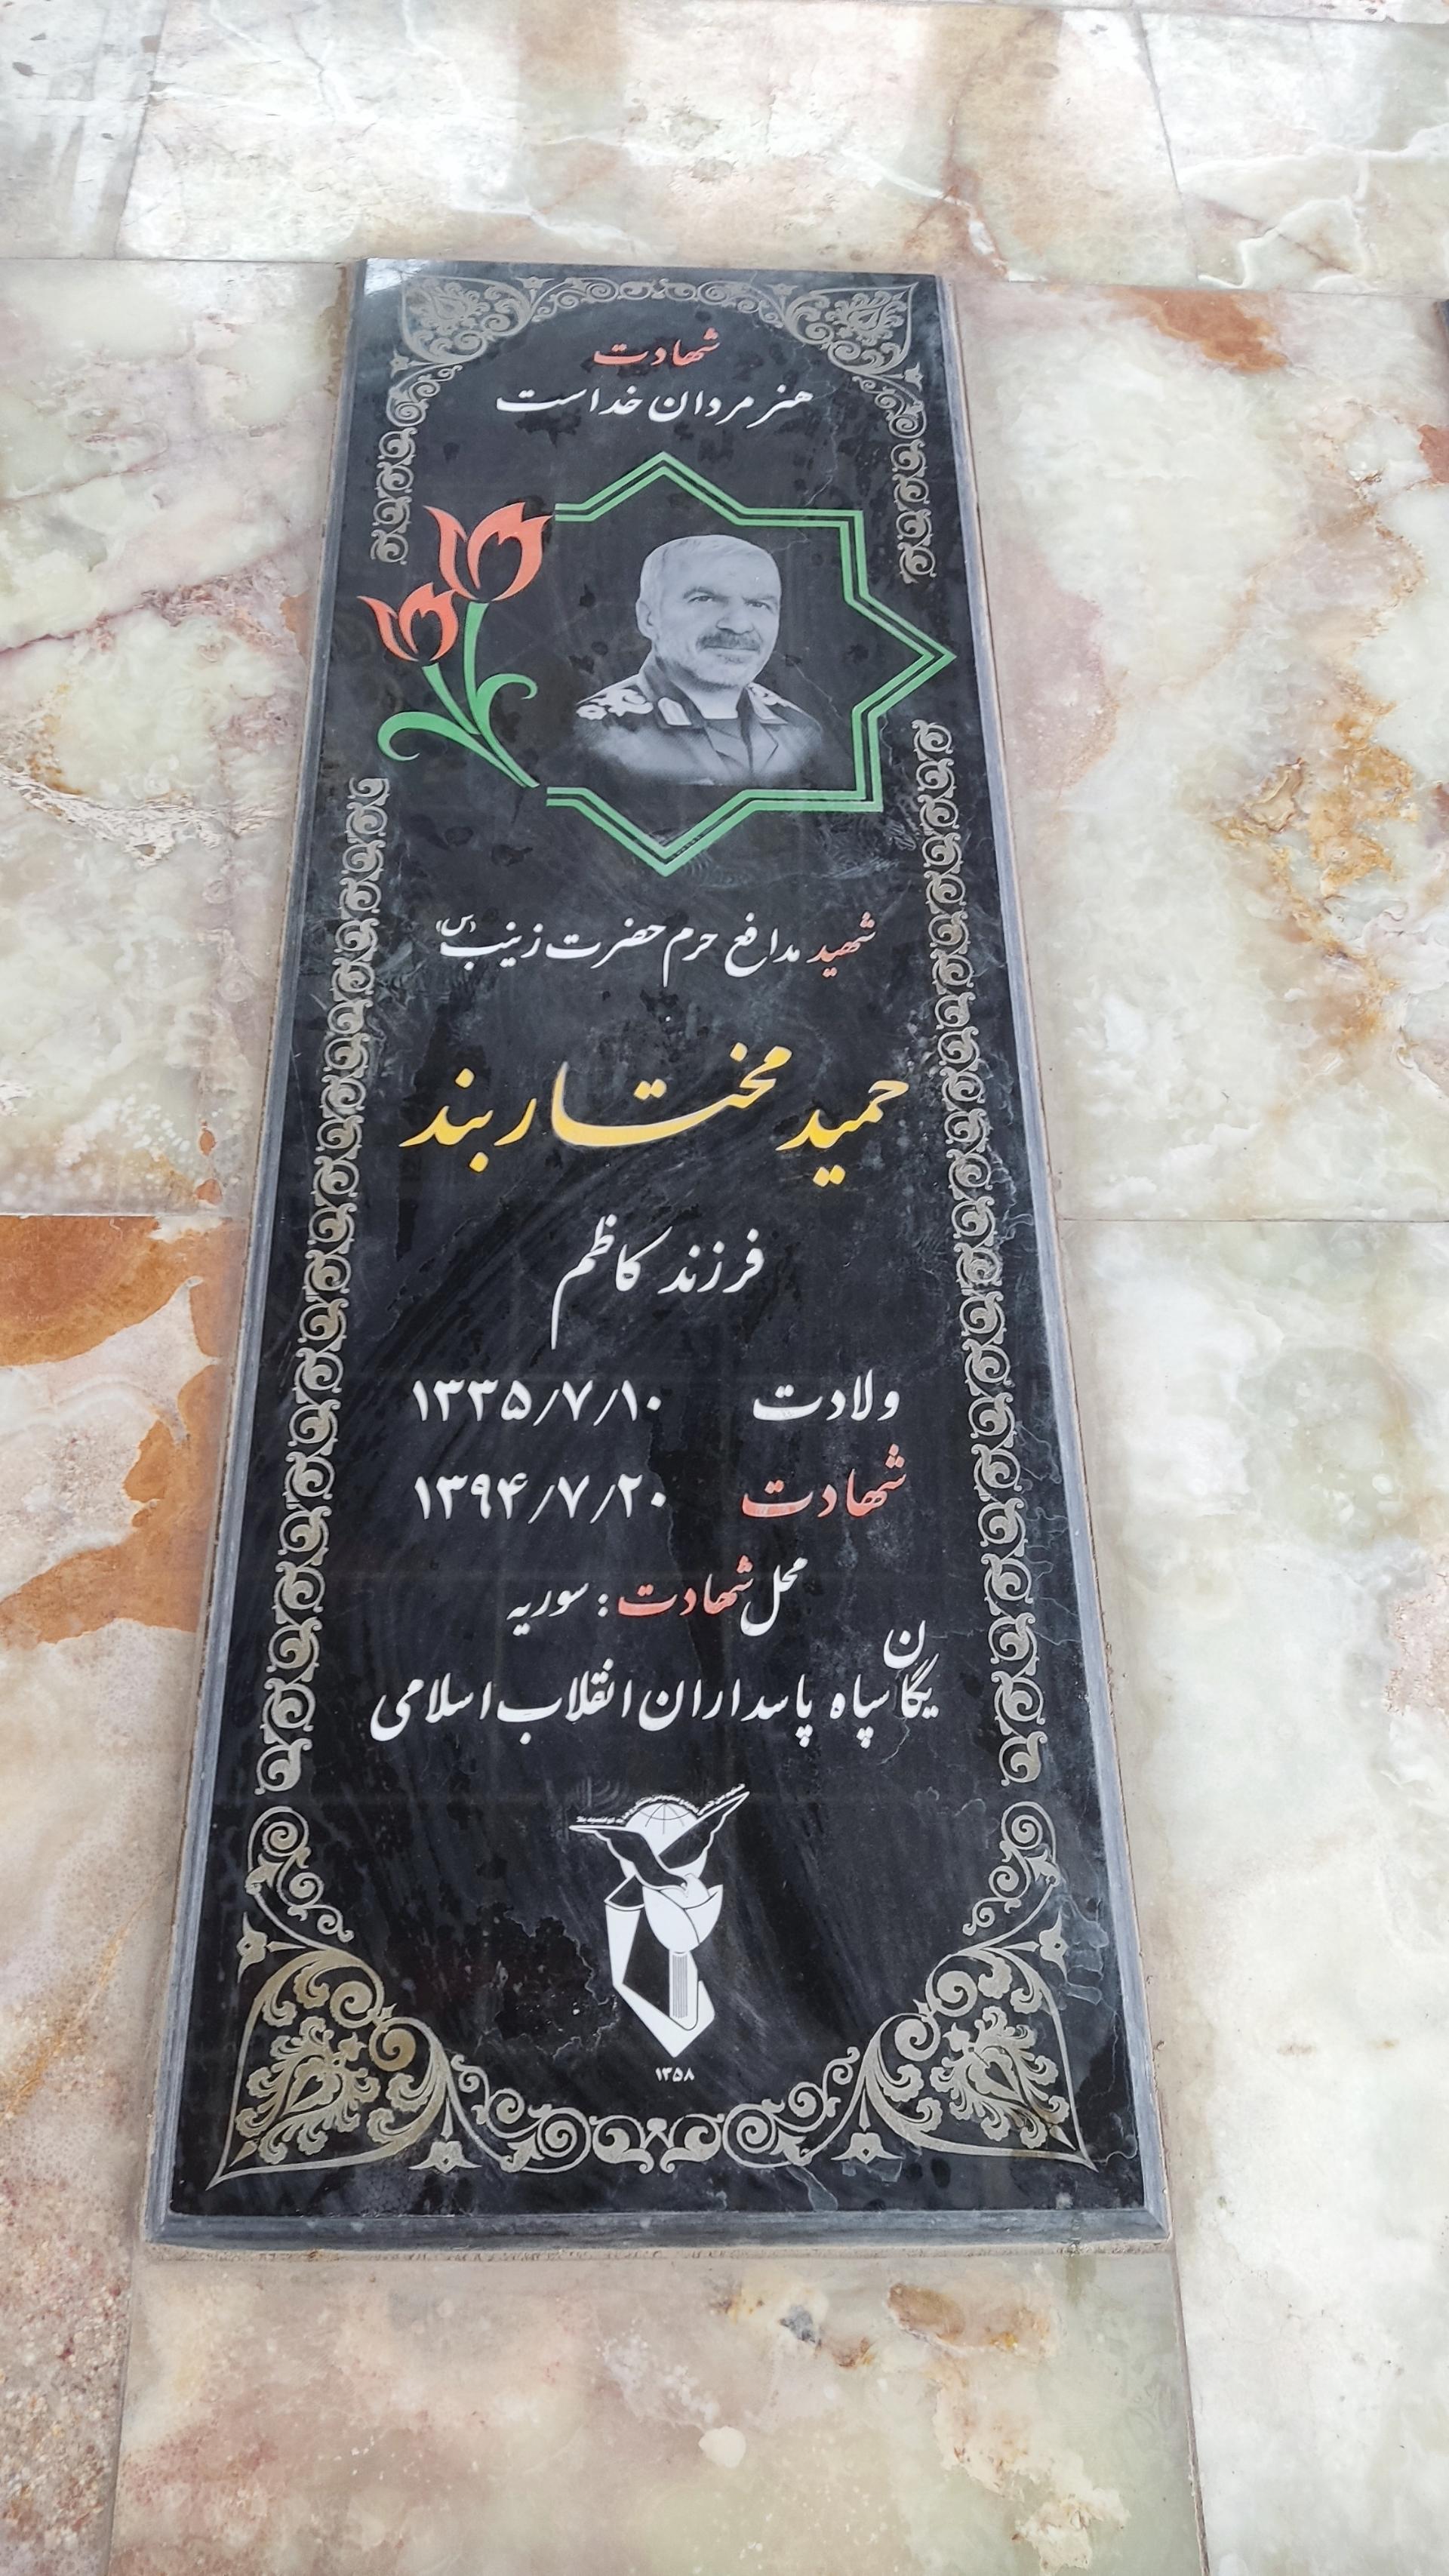 شهادت
هنر مردان خداست
شهید مدافع حرم حضرت زینب (س)
حمید مختاربند
فرزند کاظم
ولادت ۱۳۳۵/۷/۱۰
شهادت ۱۳۹۴/۷/۲۰
محل شهادت : سوریه
یگان سپاه پاسداران انقلاب اسلامی
۱۳۵۸